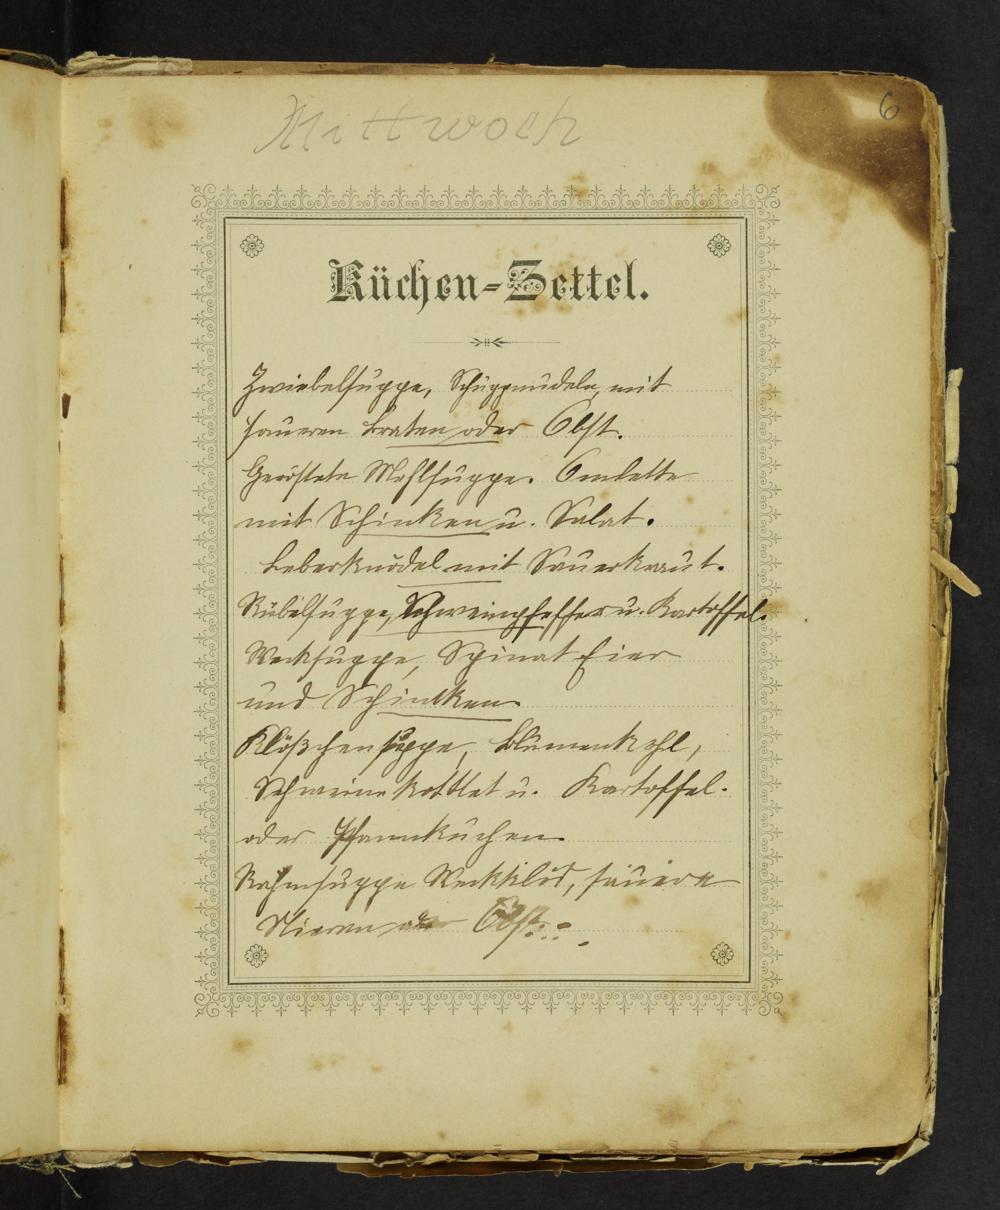 Mittwoch
6
Küchen-Zettel.
Zwiebelsuppe, Schupfnudeln, mit
saueren Braten oder Obst.
Geröstete Mehlsuppe. Omlette
mit Schinken u. Salat.
Leberknödel mit Sauerkraut.
Schweinpfeffer u. Kartoffel.
Wecksuppe, Spinat Eier
und Schinken
Klößchensuppe, Blumenkohl,
Schweinekottlet u. Kartoffel.
oder Pfannkuchen.
Rahmsuppe Weckklös, sauere
Nieren oder Obst.